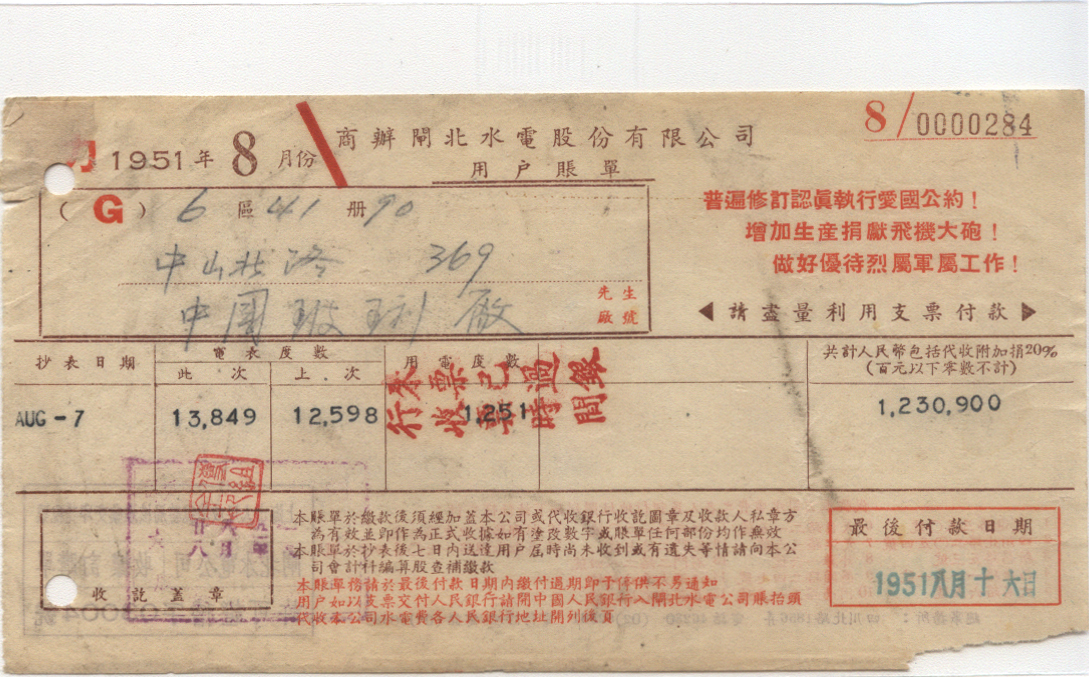 力 1951年 8 月份
商辦閘北水電股份有限公司
用户賬單
8/0000284
(G) 6 區 41 册 90
中山北路 369
中國玻璃廠
先生
廠號
普遍修訂認眞執行愛國公約！
增加生産捐獻飛機大砲！
做好優待烈屬軍屬工作！
◀請盡量利用支票付款▶
抄表日期
電表度數
此次 上次
用電度數
共計人民幣包括代收附加捐20%
(百元以下零數不計)
AUG-7 13,849 12,598 1,251 1,230,900
收訖蓋章
本賬單於繳款後須經加蓋本公司或代收銀行收訖圖章及收款人私章方
為有效並即作為正式收據如有塗改數字或賬單任何部份均作無效
本賬單於抄表後七日內送達用户屆時尚未收到或有遺失等情請向本公
司會計科編算股查補繳款
本賬單務請於最後付款日期內繳付過期即予停供不另通知
用户如以支票交付人民銀行請開中國人民銀行入閘北水電公司賬抬頭
代收本公司水電費各人民銀行地址開列後頁
最後付款日期
1951八月十六日